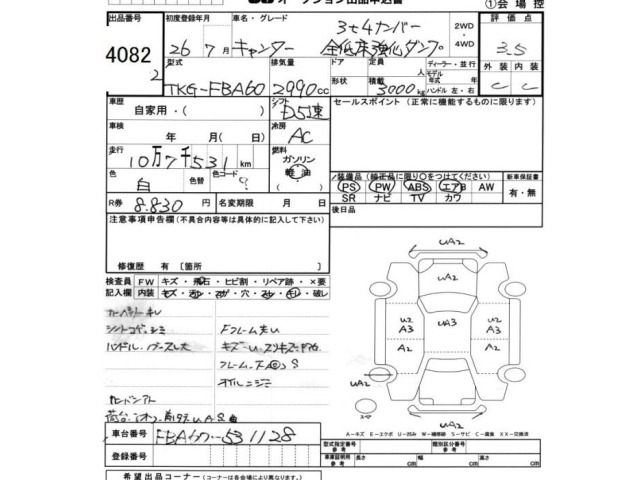 オークション出品申込書
①会場控
出品番号
4082
2
初度登録年月
26年7月
車名・グレード
キャンター
3t4ナンバー
全低床強化ダンプ
2WD
・
4WD
評価点
3.5
型式
TKG-FBA60
排気量
2990cc
ドア
形状
定員
人
積載
3000kg
ディーラー・並行
モデル
年式 年
ハンドル 左・右
外装
C
内装
C
車歴
自家用・( )
シフト
D5速
セールスポイント (正常に機能するものに限ります)
車検
年 月( 日)
冷房
AC
走行
10万7千531km
燃料
ガソリン
軽油
色
白
色替
色コード
(?
装備品 (純正品に限り○をつけてください)
PS PW ABS エアB AW
SR ナビ TV カワ
新車保証書
有・無
R券
8.830円
名変期限 月 日
後日品
注意事項申告欄(不具合内容等は具体的に記入して下さい)
修復歴 有 〔箇所 〕
検査員
記入欄
FW キズ・飛石・ヒビ割・リペア跡・×要
内装 キズ・汚れ・コゲ・穴・スレ・キレ・破レ
Fフレーム大U
フレーム下回りS
オイルニジミ
UA2
UA2
U2
A3
A2
UA3
U2
A3
A2
UA2
UA2
A-キズ E-エクボ U-凹み W-補修跡 S-サビ C-腐食 XX-交換済
車台番号
FBA60-531128
登録番号
型式指定番号
参考
類別区分番号
参考
車庫証明
参考
長さ cm
幅 cm
高さ cm
希望出品コーナー(各会場により異なります。)